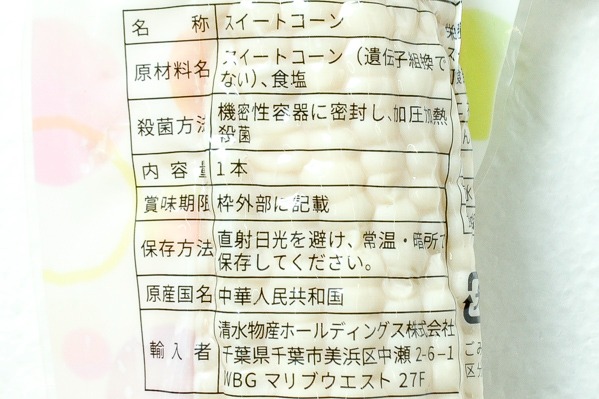 名称 スイートコーン
原材料名 スイートコーン（遺伝子組換で
ない）、食塩
殺菌方法 機密性容器に密封し、加圧加熱
殺菌
内容量 1本
賞味期限 枠外部に記載
保存方法 直射日光を避け、常温・暗所で
保存してください。
原産国名 中華人民共和国
輸入者 清水物産ホールディングス株式会社
千葉県千葉市美浜区中瀬2-6-1
WBG マリブウエスト 27F